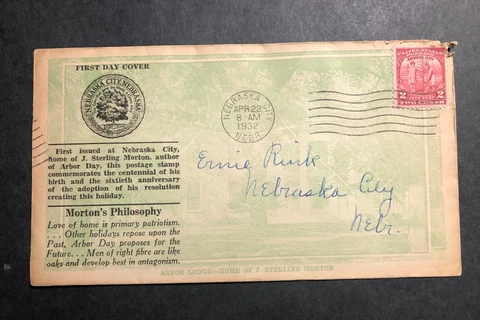 FIRST DAY COVER
NEBRASKA CITY, NEBRASKA
First issued at Nebraska City,
home of J. Sterling Morton, author
of Arbor Day, this postage stamp
commemorates the centennial of his
birth and the sixtieth anniversary
of the adoption of his resolution
creating this holiday.
Morton's Philosophy
Love of home is primary patriotism.
. . . Other holidays repose upon the
Past, Arbor Day proposes for the
Future. . . Men of right fibre are like
oaks and develop best in antagonism.
NEBRASKA CITY
APR 22
8 AM
1932
NEBR.
UNITED STATES POSTAGE
ARBOR DAY
2 2
TWO CENTS
Ernie Rink
Nebraska City
Nebr.
ARBOR LODGE—HOME OF J. STERLING MORTON